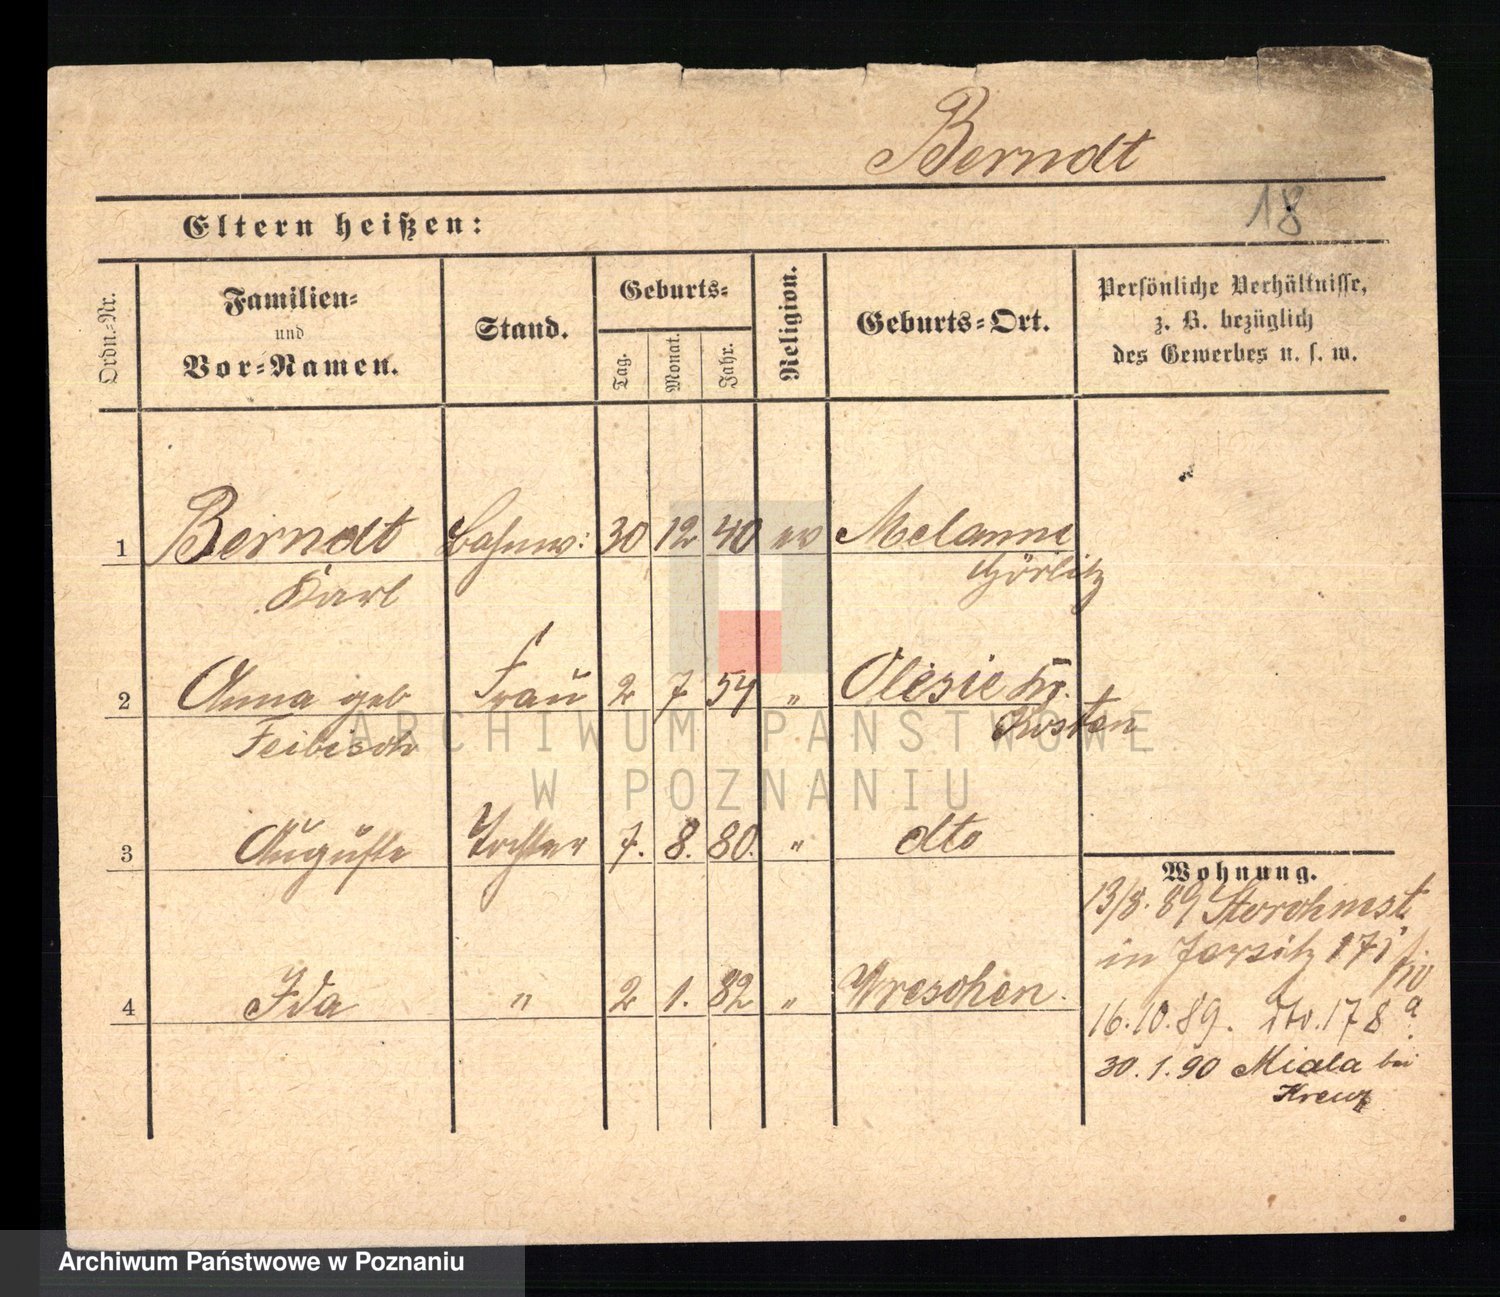 Berndt
18
Eltern heißen:
Ordn.-Nr.
Familien-
und
Vor-Namen.
Stand.
Geburts-
Tag.
Monat.
Jahr.
Religion.
Geburts-Ort.
Persönliche Verhältnisse,
z. B. bezüglich
des Gewerbes u. s. w.
1 Berndt Bahnw: 30 12 40 ev
Karl Görlitz
2 Anna geb Frau 2 7 54 "
Kosten
3 Auguste Tochter 7. 8. 80. " dto
4 Ida " 2 1. 82 " Wreschen.
Wohnung.
13/8. 89
in Jersitz
16.10.89. 178 a
30.1.90 Miala bei
Kreuz
ARCHIWUM PAŃSTWOWE
W POZNANIU
Archiwum Państwowe w Poznaniu